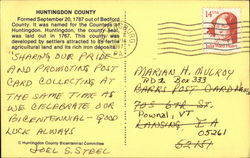 HUNTINGDON COUNTY
Formed September 20, 1787 out of Bedford
County. It was named for the Countess of
Huntingdon. Huntingdon, the county seat,
was laid out in 1767. This county was
developed by settlers attracted to its fertile
agricultural land and its rich iron deposits.
SHARING OUR PRIDE
AND PROMOTING POST
CARD COLLECTING AT
THE SAME TIME AS
WE CELEBRATE OUR
BICENTENNIAL - GOOD
LUCK ALWAYS
JOEL S. STEEL
© Huntingdon County Bicentennial Committee
14
MARIAN H. MULROY
RD 2 BOX 333
BARRS POST CARD
Pownal, VT
LANSING, IA
05261
52151